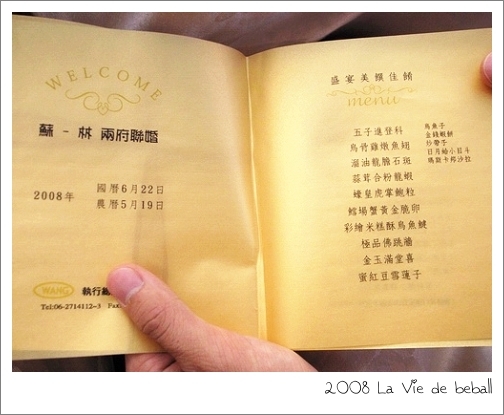 WELCOME
蘇-林 兩府聯婚
2008年
國曆6月22日
農曆5月19日
WANG
執行
Tel:06-2714112~3 Fax:
盛宴美饌佳餚
menu
五子進登科
烏魚子
金錢蝦餅
紗帶子
日月蛤小目斗
瑪斯卡邦沙拉
烏骨雞燉魚翅
溜油龍膽石斑
蒜茸合粉龍蝦
蠔皇虎掌鮑粒
鱈場蟹黃金脆卵
彩繪米糕酥烏魚鰎
極品佛跳牆
金玉滿堂喜
蜜紅豆雪蓮子
2008 La Vie de beball